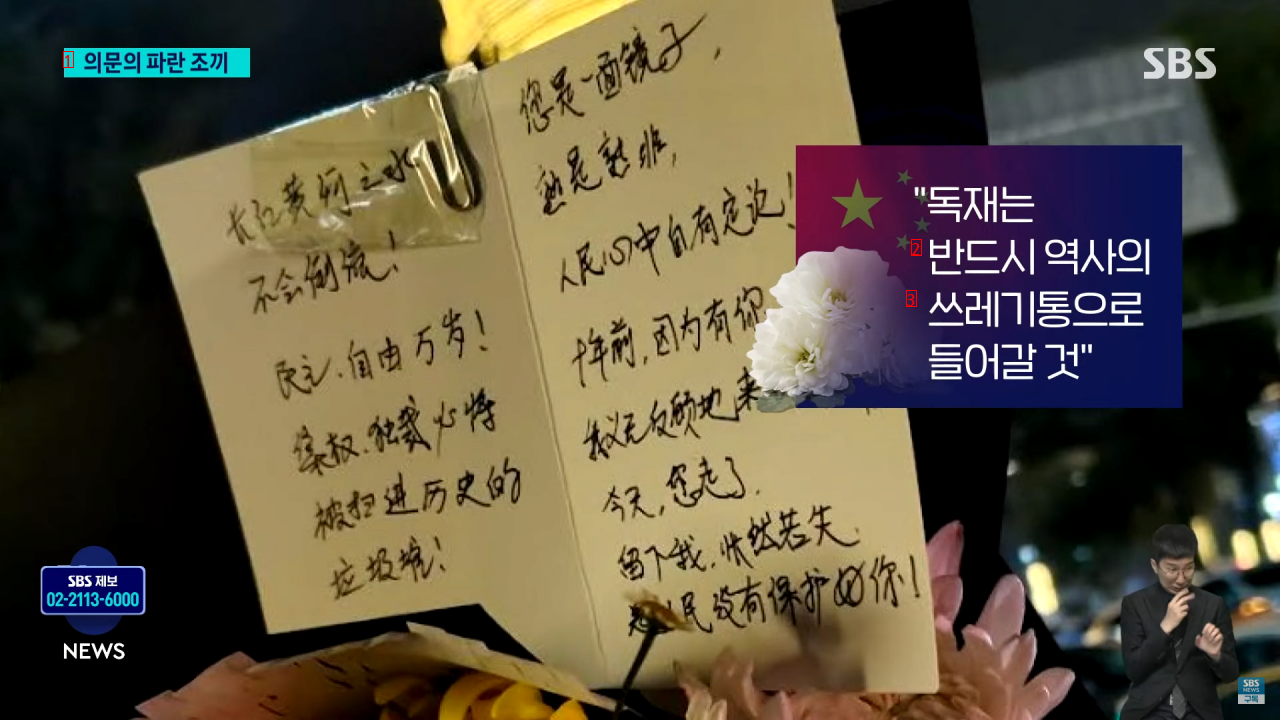 의문의 파란 조끼
SBS
长江黄河之水
不会倒流!
民主、自由万岁!
集权、独裁必将
被扫进历史的
垃圾堆!
您是一面镜子,
孰是孰非,
人民心中自有定论!
十年前,因为有你
我义无反顾地来
今天,您走了.
留下我,怅然若失.
民没有保护好你!
"독재는
반드시 역사의
쓰레기통으로
들어갈 것"
SBS 제보
02-2113-6000
NEWS
SBS
NEWS
구독
1
2
3